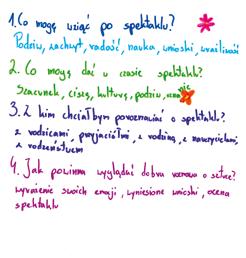 1. Co mogę wziąć po spektaklu?
Podziw, zachwyt, radość, nauka, wnioski, wrażliwość
2. Co mogę dać w czasie spektaklu?
Szacunek, ciszę, kulturę, podziw,
3. Z kim chciałbym porozmawiać o spektaklu?
z rodzicami, przyjaciółmi, z rodziną, z nauczycielami,
z rodzeństwem
4. Jak powinna wyglądać dobra rozmowa o sztuce?
wyrażenie swoich emocji, wyniesione wnioski, ocena
spektaklu